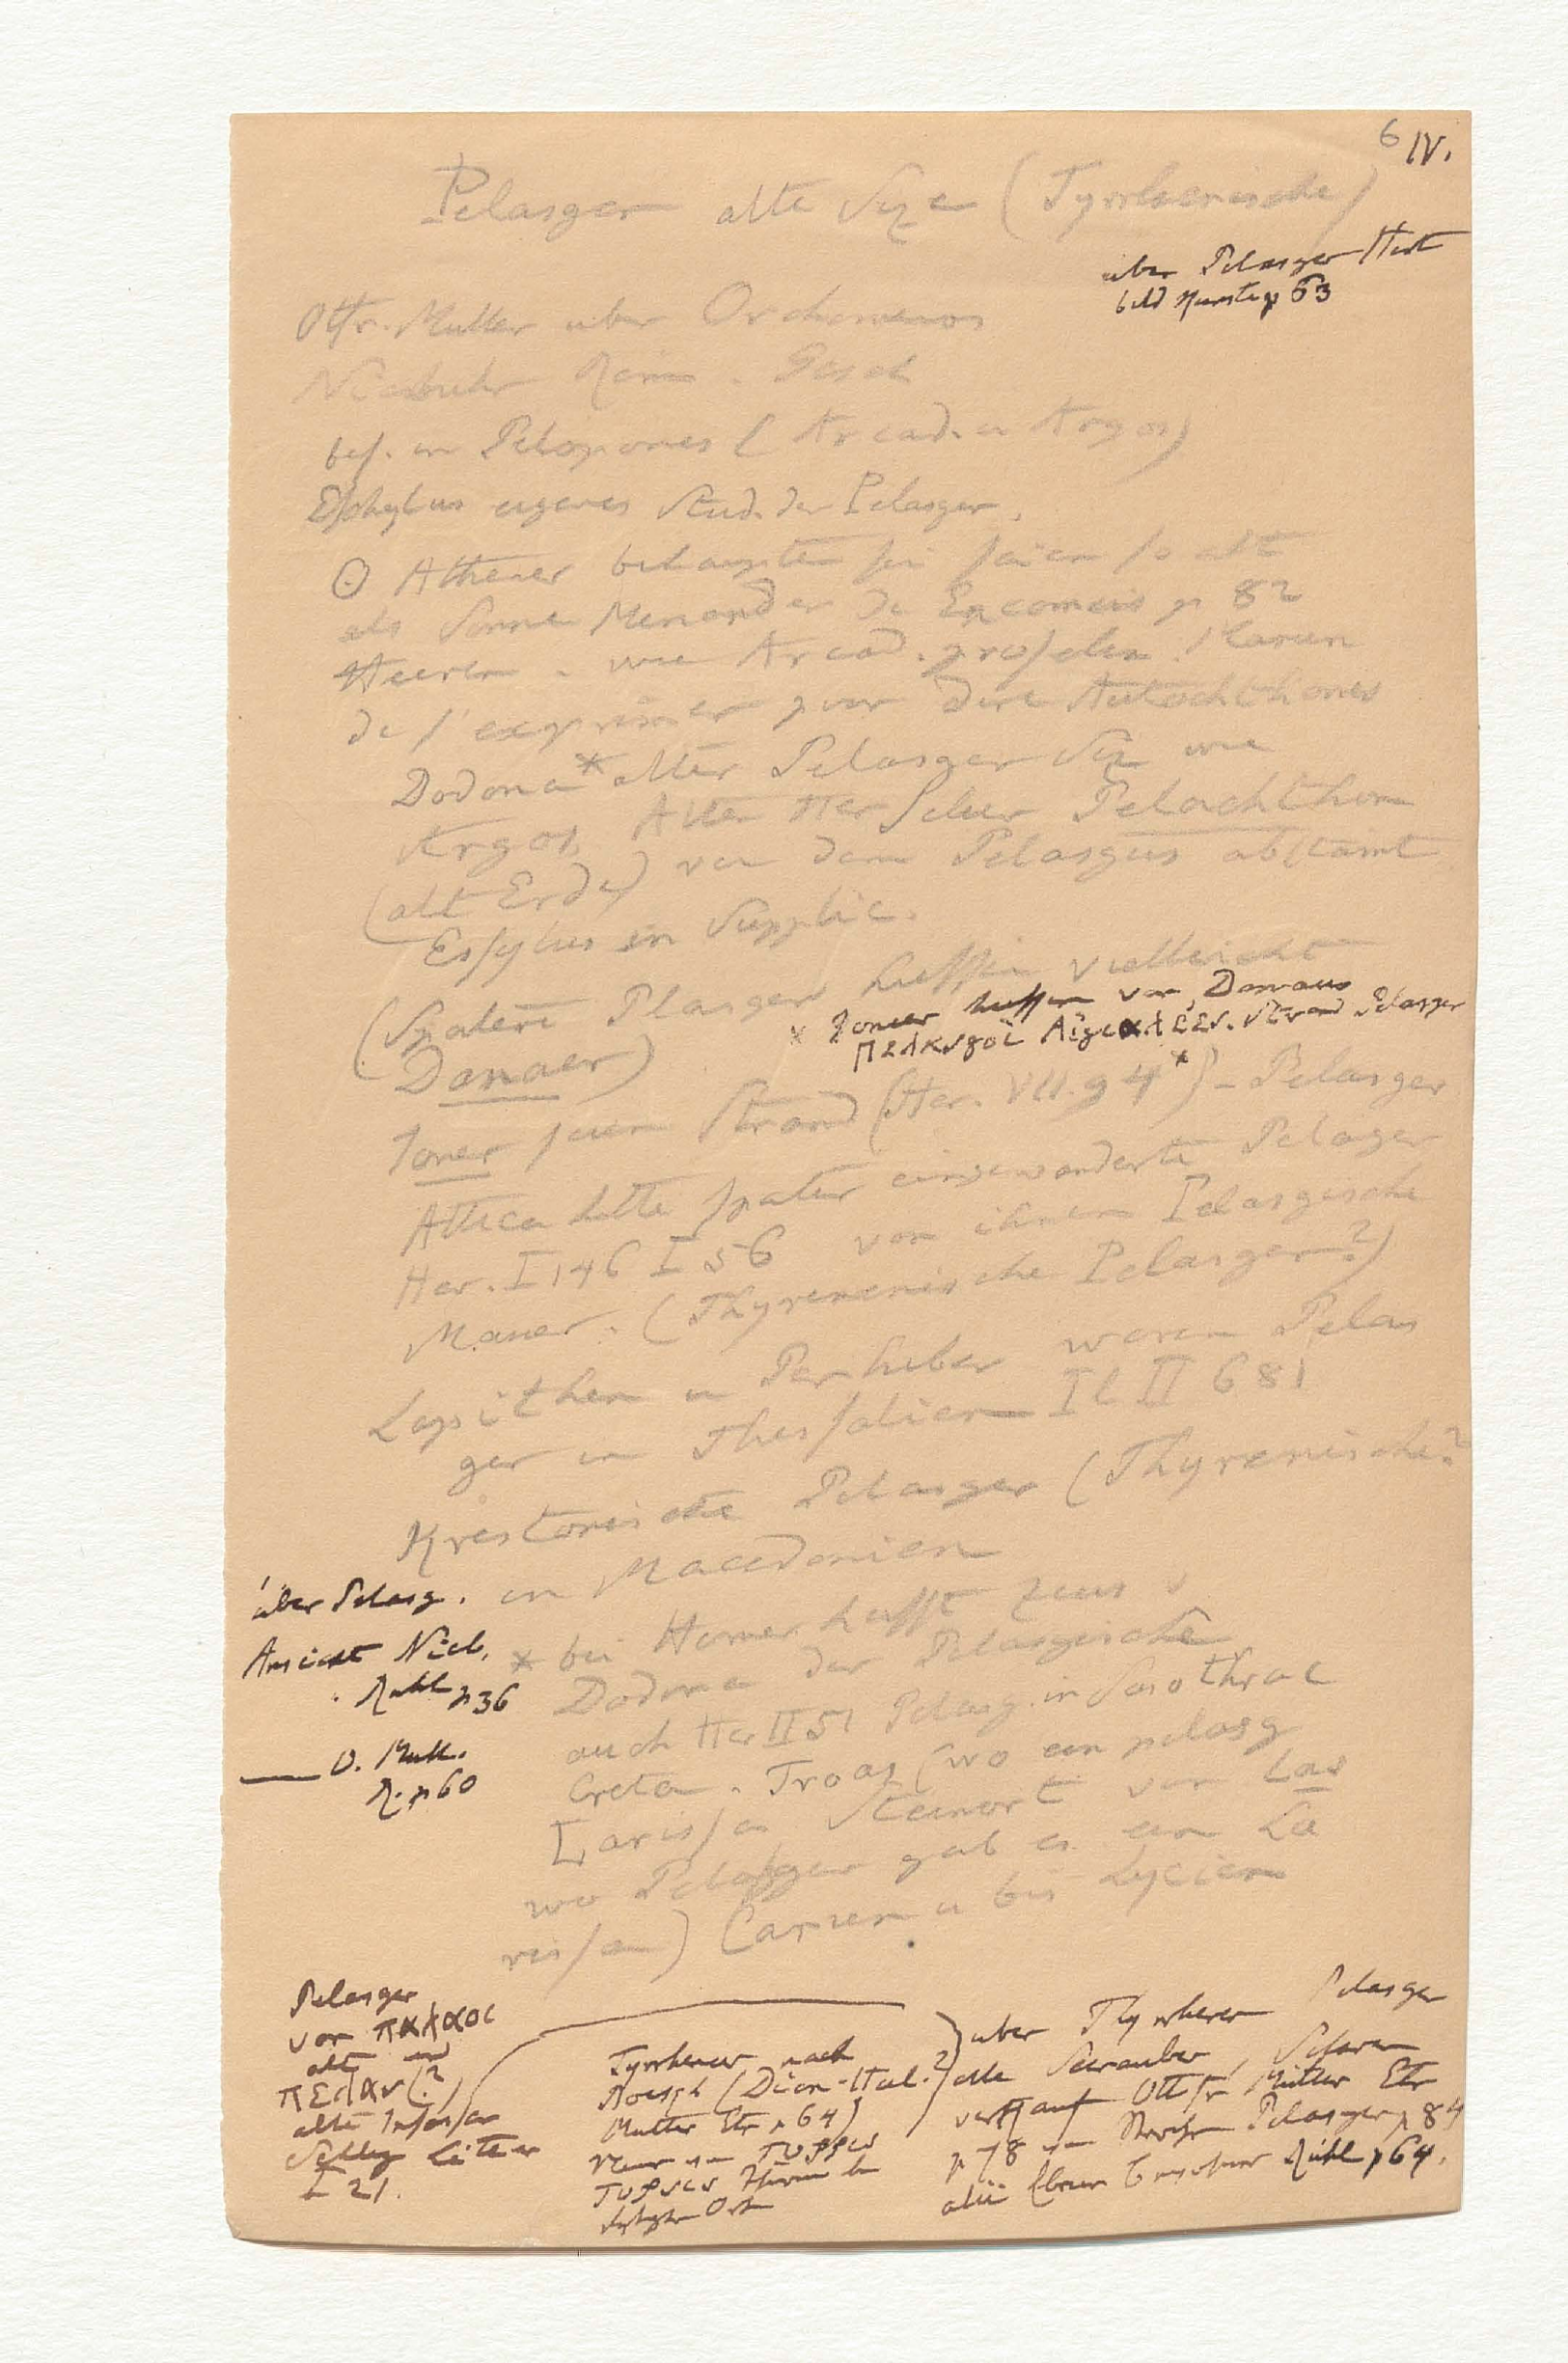 6 IV.
Pelasger alte Size (Tyrrhenische)
über Pelasger Hirt
bild Kunste p 63
Ottfr. Muller uber Orchomenos
Niebuhr Röm. Gesch
bes. in Peloponnes (Arcad. u Argos)
Eschylus eigenes Stud. der Pelasger.
Athener behaupten sei seien so alt
als Sonne Menander de Encomeis p 82
Heeren. wie Arcad. proselen. Facon
de s'exprimer pour dire Autochthones
Dodona * alter Pelasger Siz wie
Argos Alter Herscher Pelachthon
(alt Erde) von dem Pelasgus abstamt
Essylus in Supplic.
(Spatere Plasger hiessen vielleicht
Danaer)
x Joner hiessen vor Danaus
Strand Pelasger
Joner seien Strand (Her. VII. 94 *) - Pelasger
Attica hatte spater eingewanderte Pelasger
Her. I 146 I 56 von ihnen Pelasgische
Mauer. (Thyrenenische Pelasger?)
Lapithen u Perheber waren Pelas
ger in Thessalien Il II 681
Krestonische Pelasger (Thyrenische?
in Macedonien
über Pelasg.
Ansicht Nieb.
Ruhl p 36
O. Mull.
R. p 60
* bei Homer heisst Zeus v
Dodona der Pelasgische
auch Her II 51 Pelasg. in Samothrac
Creta. Troas (wo ein pelasg
Larissa Steinort von Las
wo Pelasger gab es ein La
rissa) Carien u bis Lycien
Pelasger
von παλαος
alt und
πελαν (?)
alte
Schleg
I 21.
Tyrrhener nach
(Dion. Hal.?)
Muller Etr p 64)
Ort
über Thyrrhener Pelasger
alte Seerauber
auf Ottfr Müller Etr
p 78 Pelasger p 84
Rühl p 64.